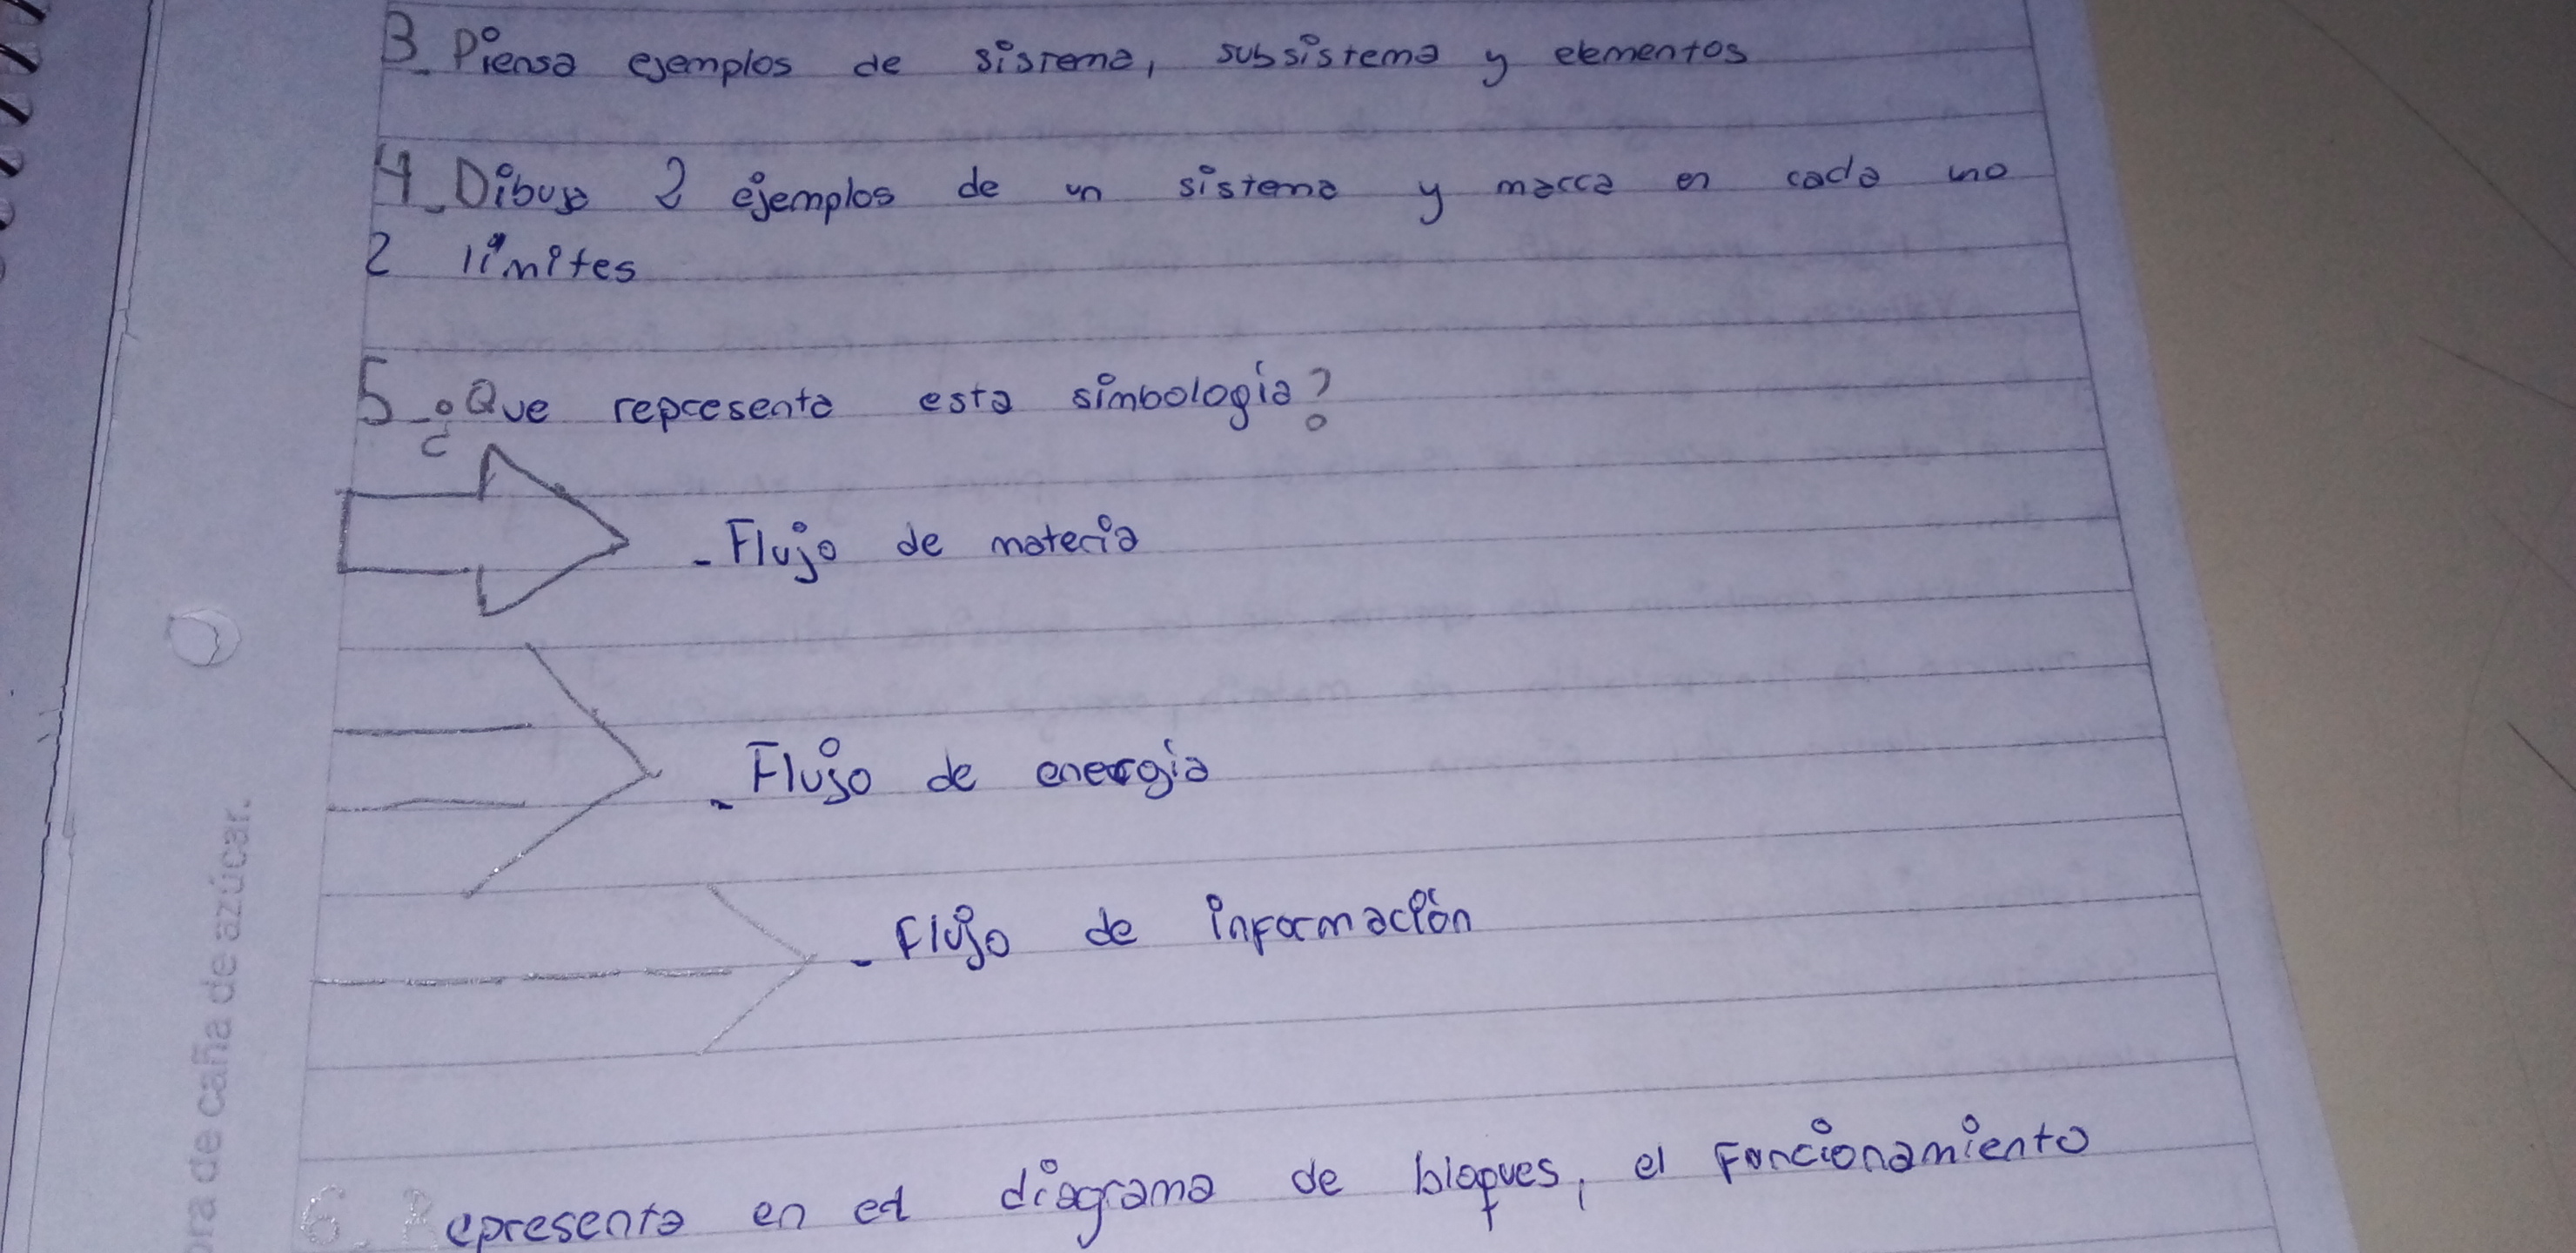 3_ Piensa ejemplos de sistema, subsistema y elementos
4_ Dibuja 2 ejemplos de un sistema y marca en cada uno
2 límites
5_ ¿Que representa esta simbologia?
- Flujo de materia
- Flujo de energia
- Flujo de información
6. Representa en el diagrama de bloques, el funcionamiento
ora de caña de azúcar.